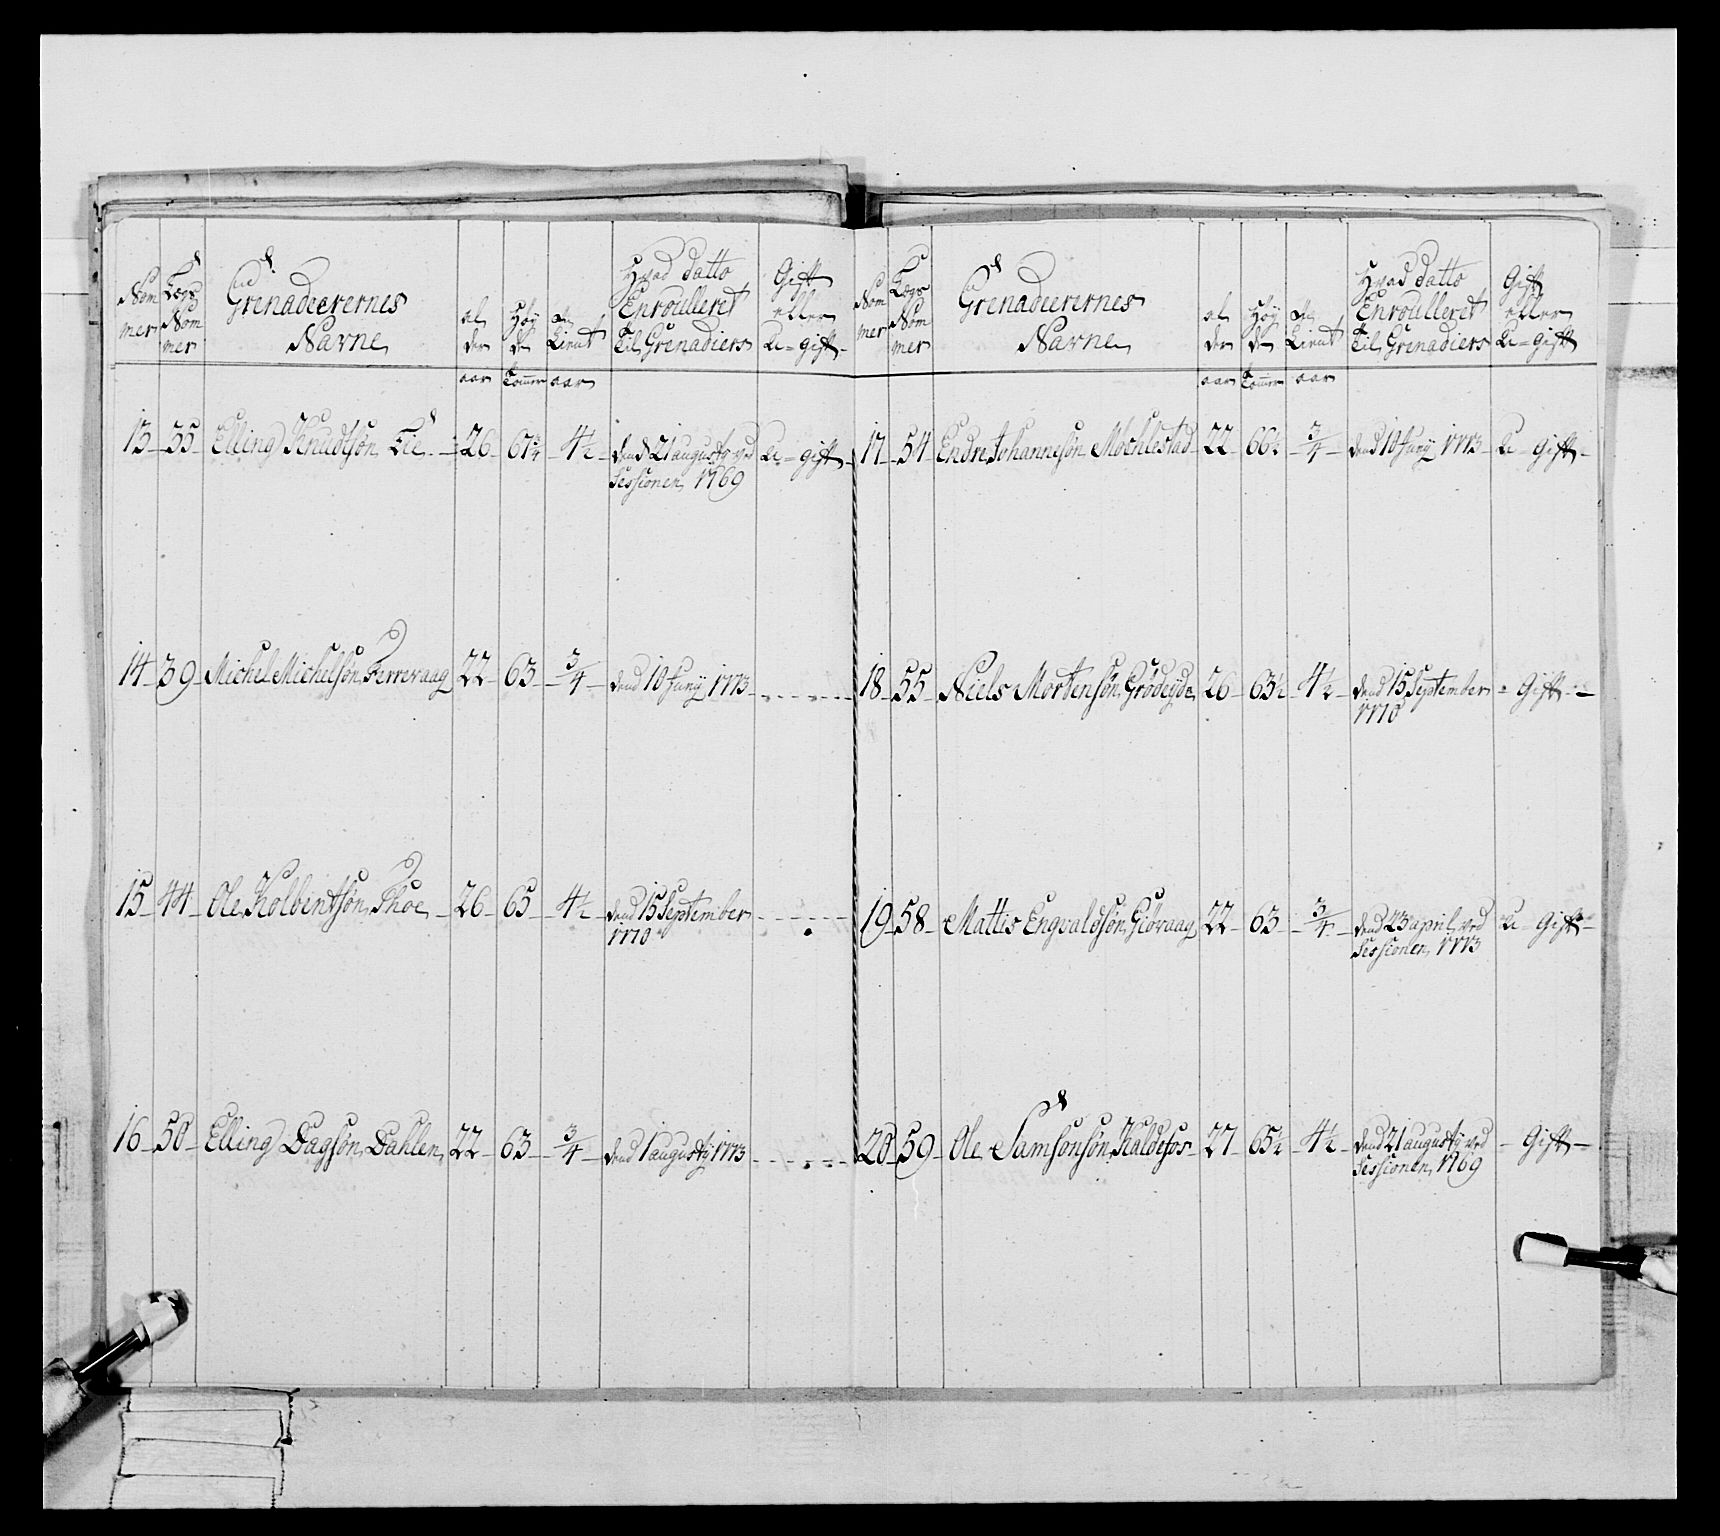 Nom mer
Lægs Nom mer
Grenadeerernes Navne
al der
Høy de
Tient
Hvad datto Enroulleret Til Grenadiers
Gift eller U=gift
aar Tommer aar
13 35 Elling Knudtsøn Lie 26 67¾ 4½ dend 21 augusty ved U=gift
Sessionen 1769
14 39 Michel Michelsøn Ferrevaag 22 63 ¾ dend 10 Juny 1773
15 44 Ole Kolbentsøn Thoe 26 65 4½ dend 15 September
1770
16 50 Elling Dagsøn Dahlen 22 63 ¾ dend 1 augusty 1773
Nom mer
Lægs Nom mer
Grenadeerernes Navne
al der
Høy de
Tient
Hvad datto Enroulleret Til Grenadiers
Gift eller U=gift
aar Tommer aar
17 54 Endre Johannesøn Mochlestad 22 66½ ¾ dend 10 Juny 1773 U=Gift
18 55 Niels Mortensøn Grødeyde 26 63½ 4½ dend 15 September Gift
1770
19 58 Mattis Engvaldsøn Giøvaag 22 63 ¾ dend 23 april ved U=Gift
Sessionen 1773
20 59 Ole Samsonsøn Kaldefos 27 65½ 4½ dend 21 augusty ved Gift
Sessionen 1769